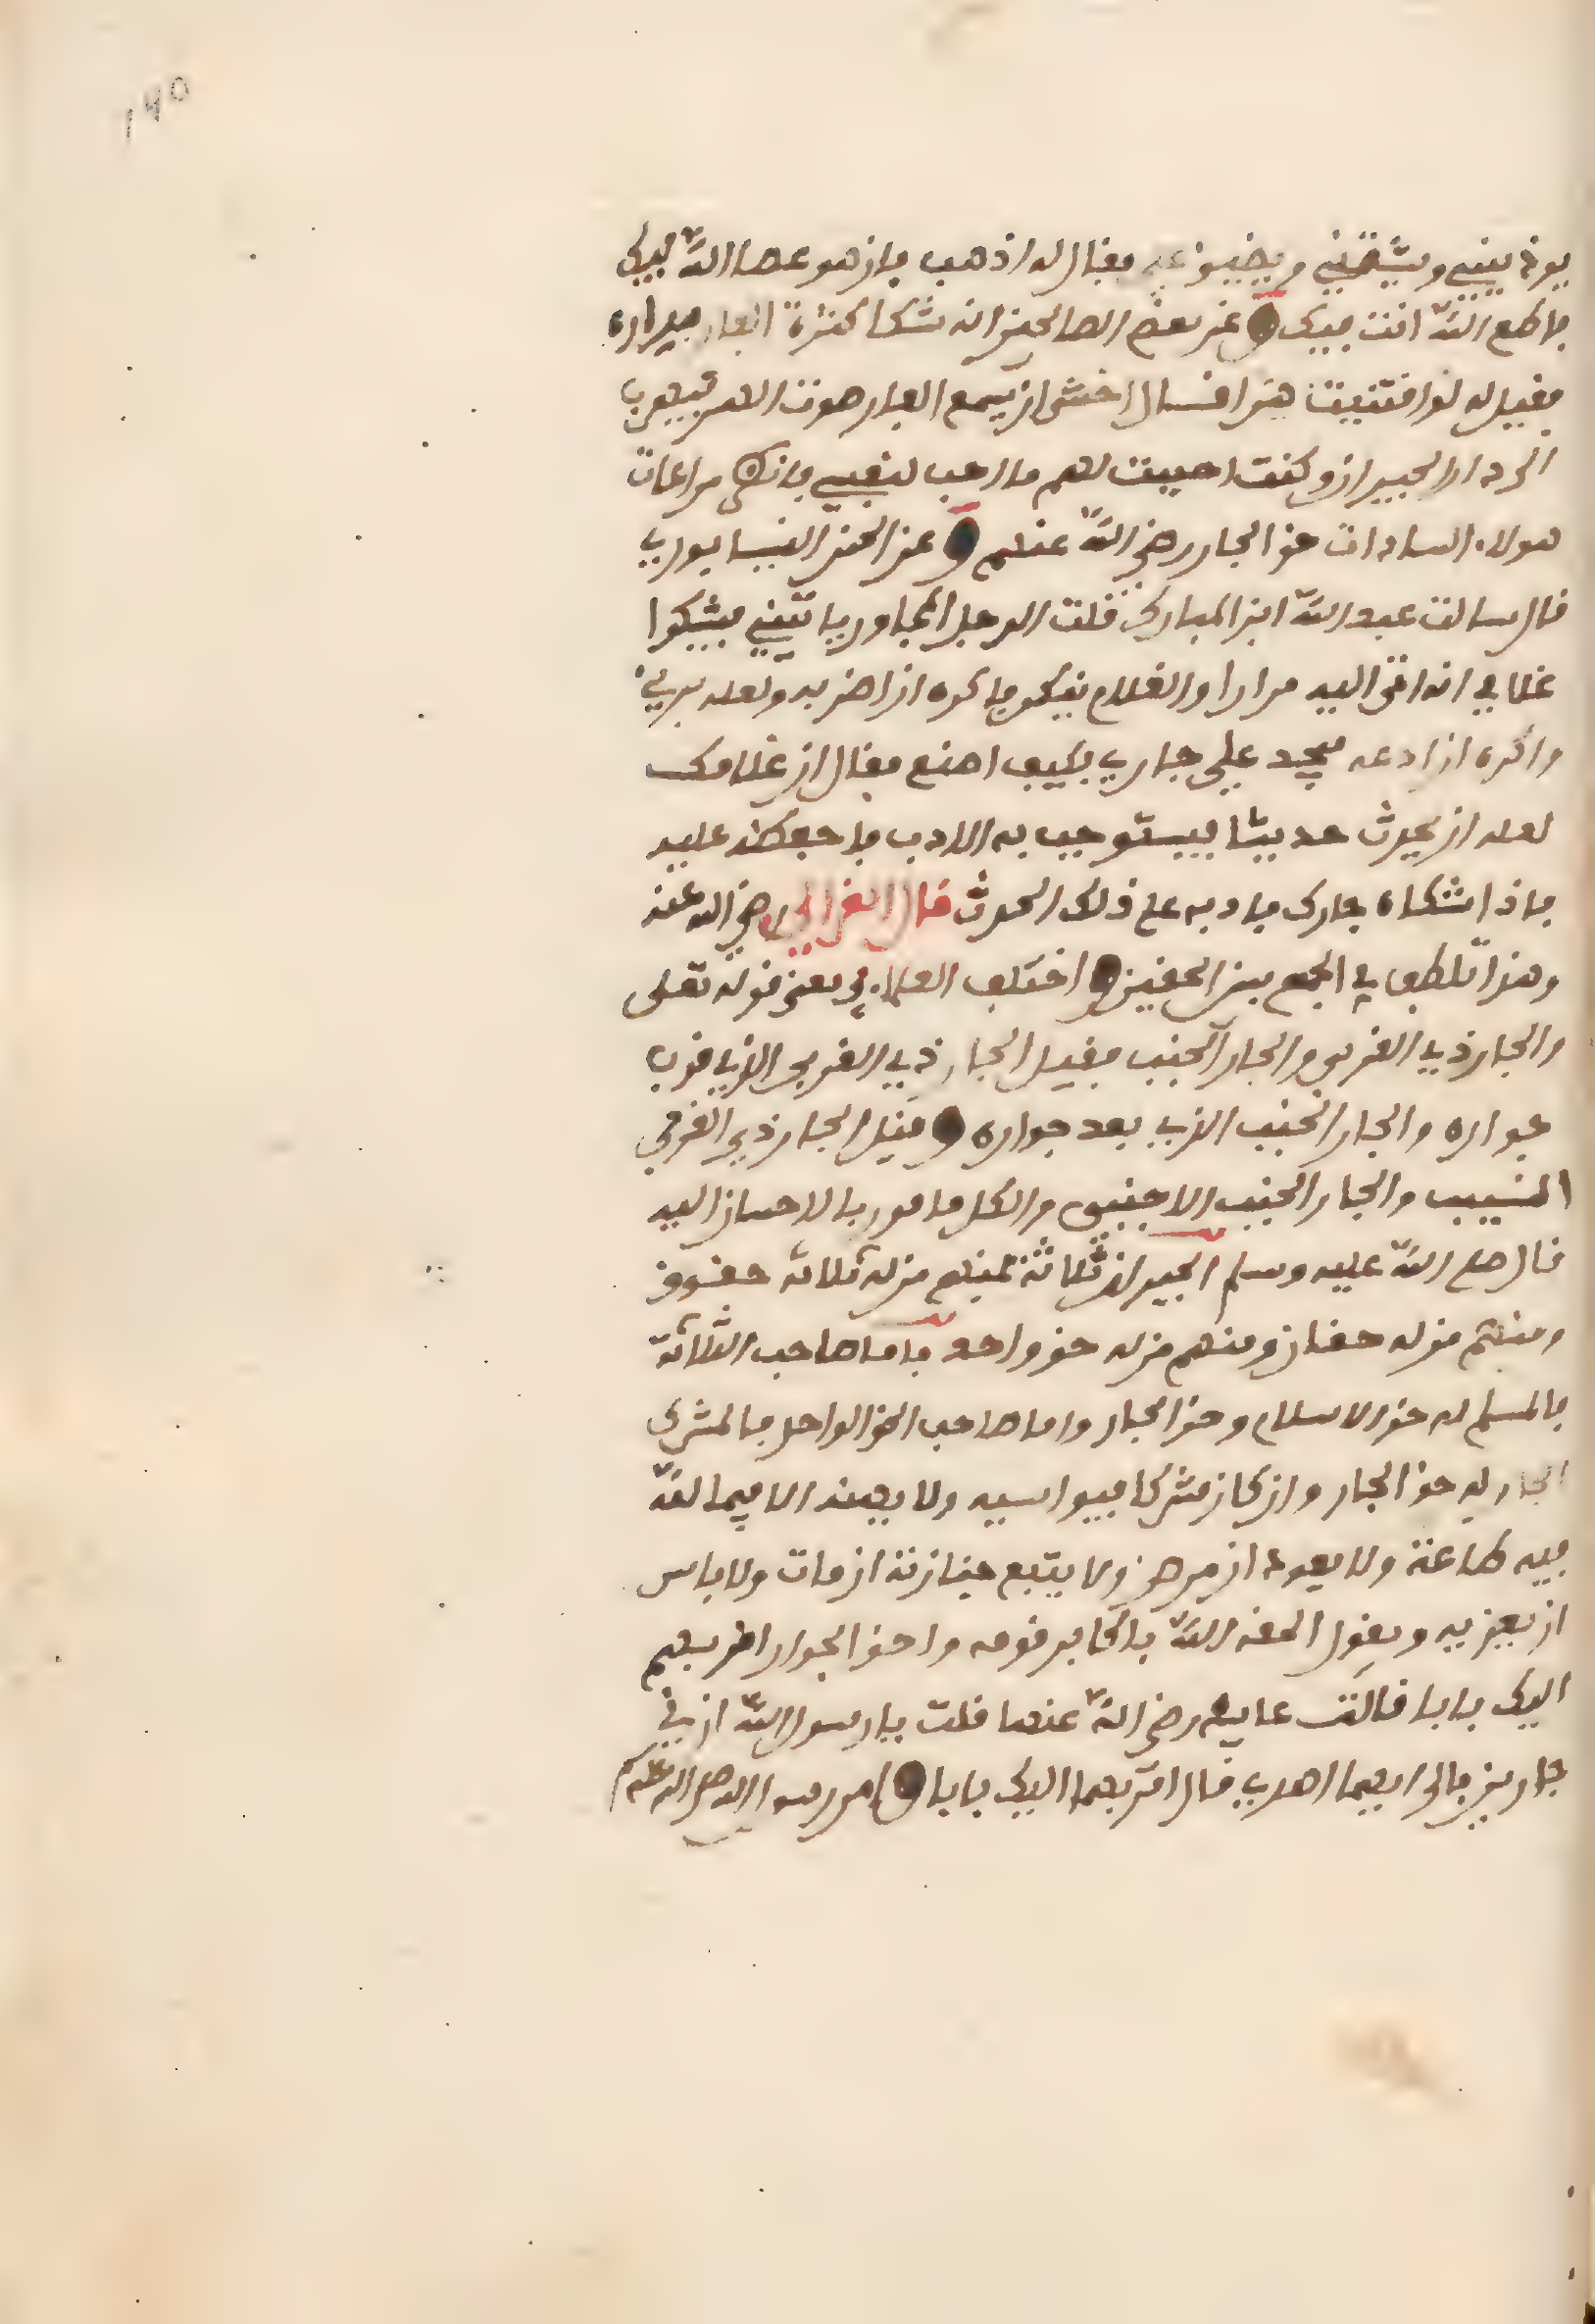 ١٤٥
يوذيني ويشتمني ويضيق علي فقال له اذهب فان هو عصا الله فيك
فاطع الله انت فيه وعن بعض الصالحين انه شكا كثرة الفار في داره
فقيل له لو اقتنيت هرا فقال اخشى ان يسمع الفار صوت الهر فيهرب
الى دار الجيران وكنت احببت لهم ما لا احب لنفسي فانظر مراعات
هولاء السادات حق الجار رضي الله عنهم وعن الحسن النيسابوري
قال سالت عبد الله ابن المبارك قلت الرجل المجاور ياتيني فيشكوا
غلامي انه اتى اليه مرارا والغلام ينكر فاكره ان اضربه ولعله بريء
واكره ان ادعه فيجد علي جاري فكيف اصنع فقال ان غلامك
لعله ان يحدث حدثا يستوجب به الادب فاحفظه عليه
فاذا شكاه جارك فادبه على ذلك الحدث قال الغزالي رضي الله عنه
وهذا تلطف في الجمع بين الحقين واختلف العلماء في معنى قوله تعلى
والجار ذي القربى والجار الجنب فقيل الجار ذي القربى الذي قرب
جواره والجار الجنب الذي بعد جواره وقيل الجار ذي القربى
النسيب والجار الجنب الاجنبي والكل مامور بالاحسان اليه
قال صلى الله عليه وسلم الجيران ثلاثة فمنهم من له ثلاثة حقوق
ومنهم من له حقان ومنهم من له حق واحد فاما صاحب الثلاثة
فالمسلم له حق الاسلام وحق الجار واما صاحب الحق الواحد فالمشرك
الجار له حق الجار وان كان مشركا فيواسيه ولا يعينه الا فيما لله
فيه طاعة ولا يعوده ان مرض ولا يتبع جنازته ان مات ولا باس
ان يعزيه ويقول اخلف الله باكابر قومه واحق الجوار اقربهم
اليك بابا قالت عايشة رضي الله عنها قلت يا رسول الله ان لي
جارين فالى ايهما اهدي قال اقربهما اليك بابا وامر رسول الله صلى الله عليه وسلم